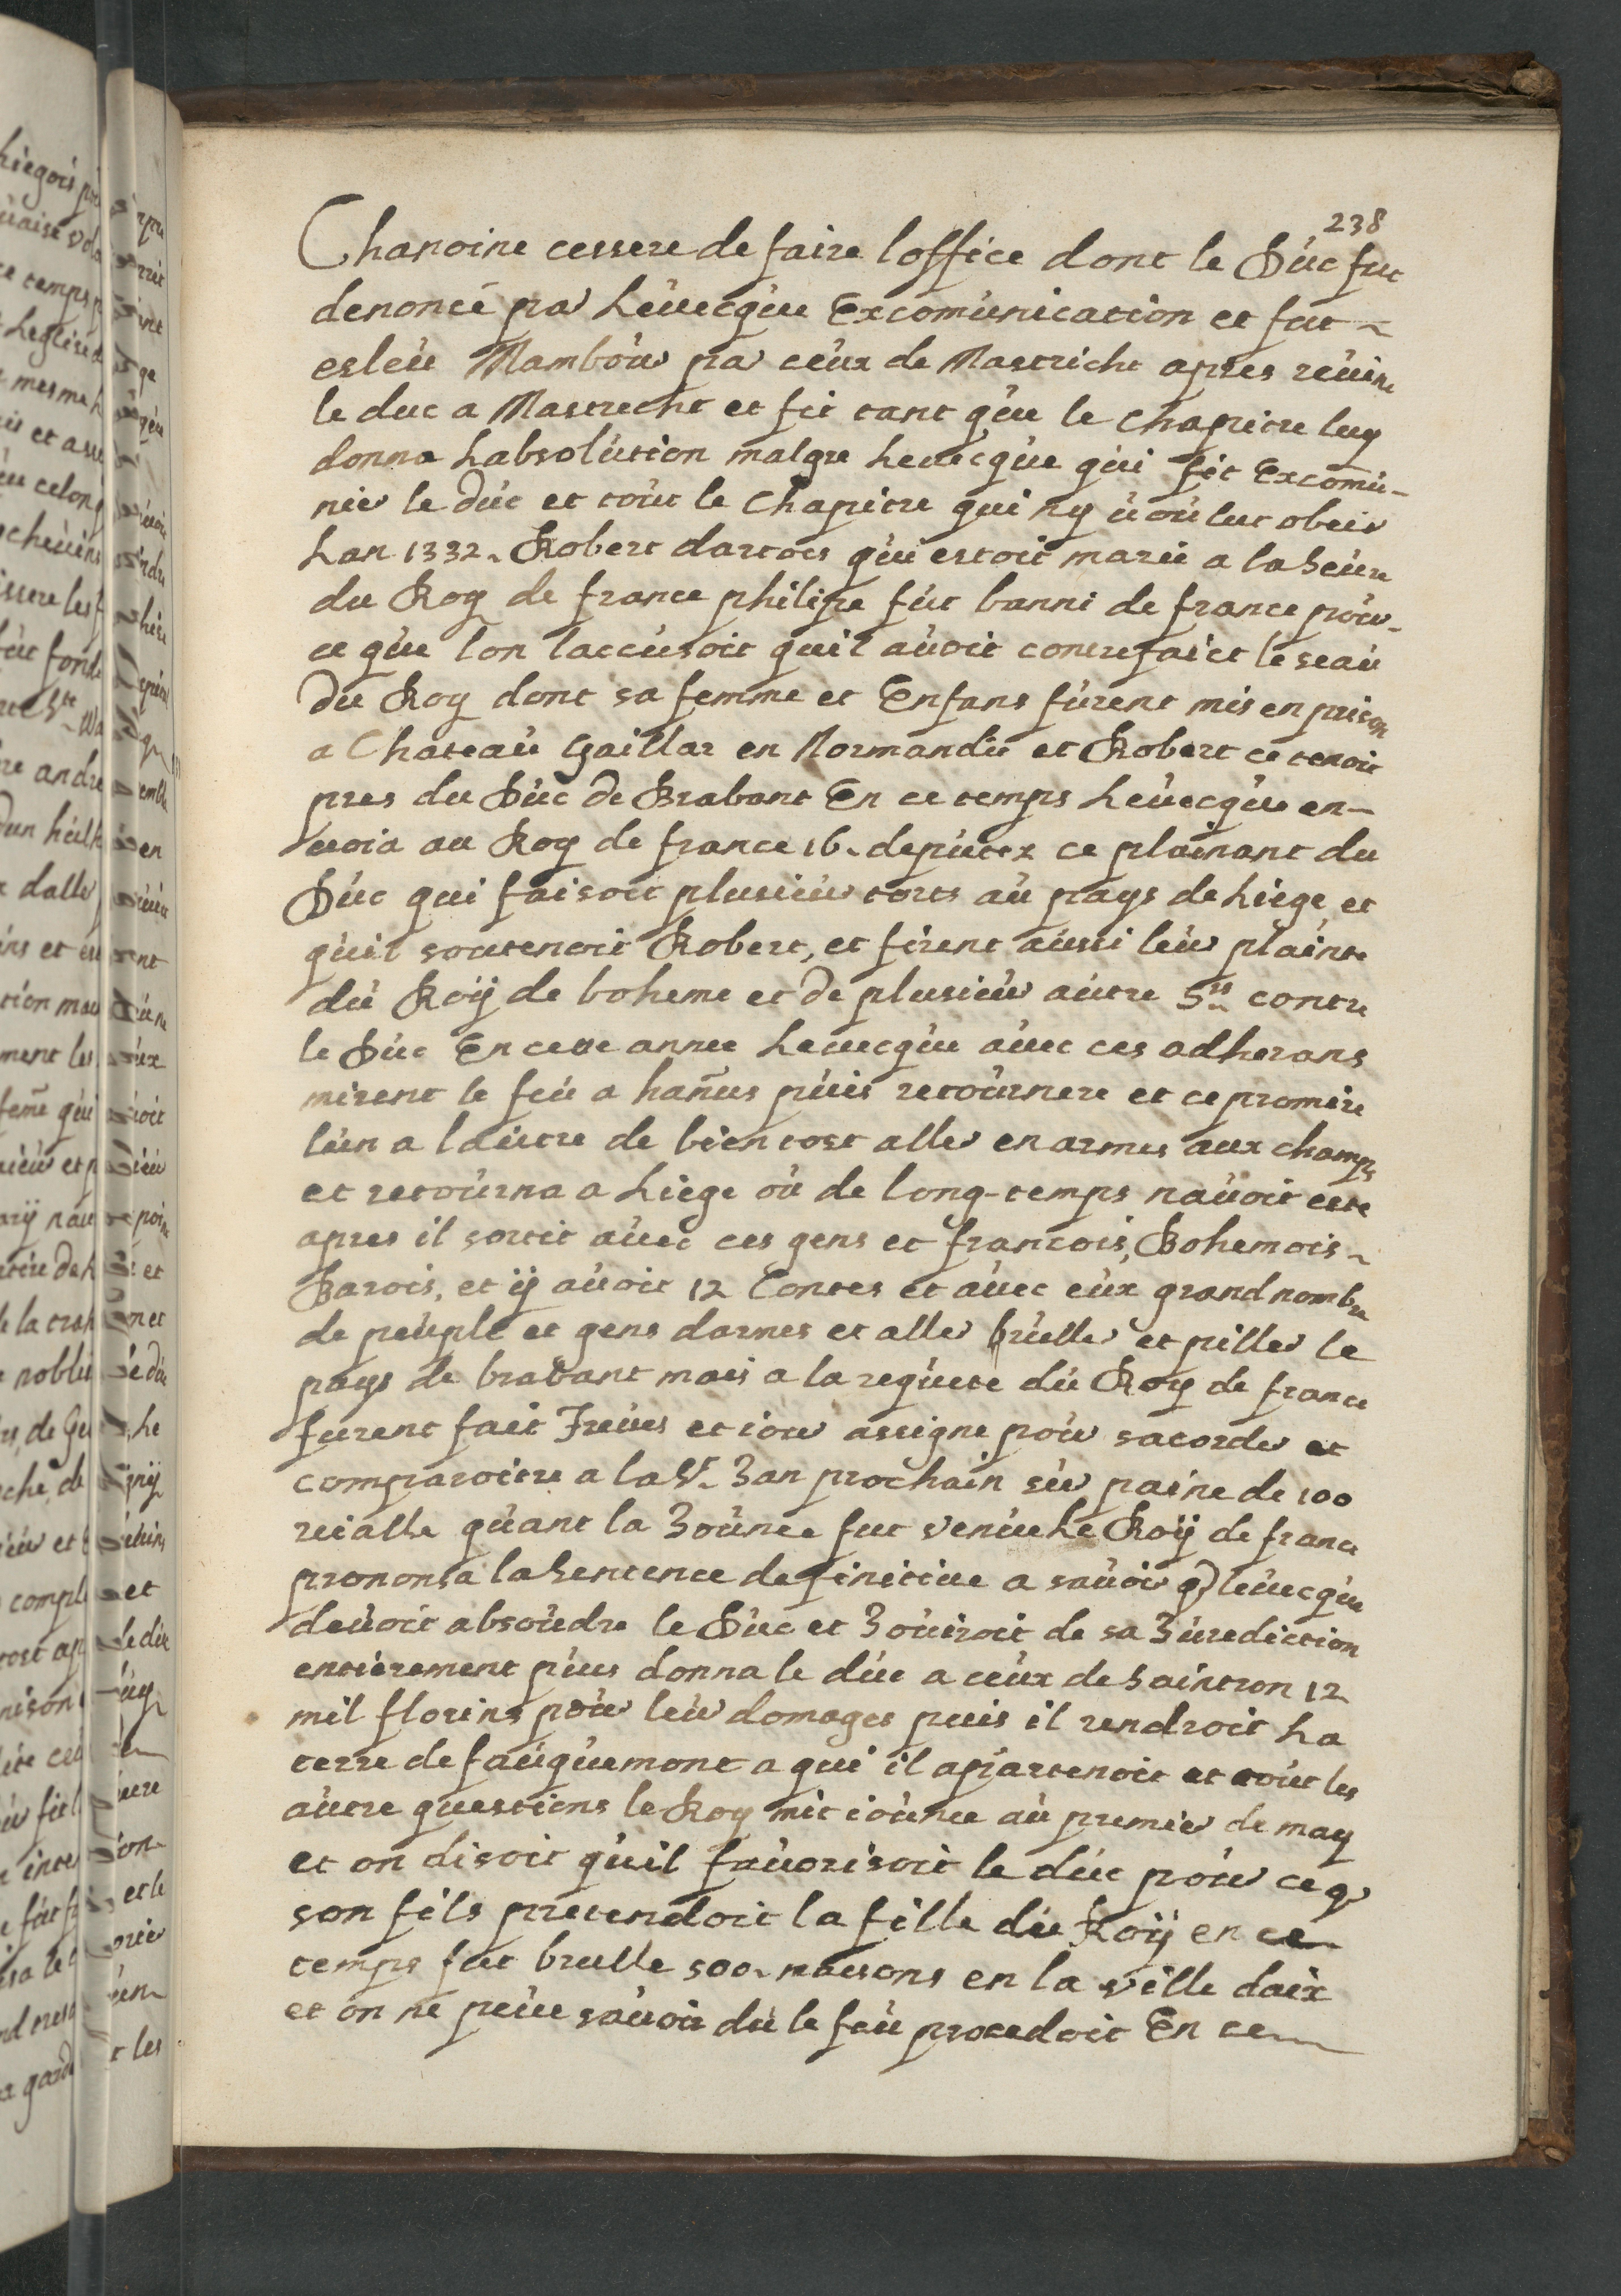 238
Chanoine cessere de faire loffice dont le Dúc fut
denoncé par Léuecqúe Excomúnication et fut
esleú Mamboúr par ceúx de Mastricht apres reúint
le duc a Mastrecht et fit tant qúe le Chapitre luy
donna Labsolútion malgre Leuecqúe qúi fit Excomú-
nier le dúc et toút le Chapitre qui ny úoúlut obeir
Lan 1332. Robert dartois qúi estoit marié a la Seúre
du Roy de france philipe fút banni de france poúr
ce qúe lon laccúsoit quil aúoit contrefaict le seaú
du Roy dont sa femme et Enfans fúrent mis en prison
a Chateaú Gaillar en Normandie et Robert ce tenoit
pres du Dúc de Brabant En ce temps Léuecqúe en-
uoia au Roy de france 16. depútez ce plainant du
Dúc qui faisoit plusieúr torts aú pays de Liege et
qúil soutenoit Robert, et firent aússi leúr plainte
dú Roÿ de boheme et de plusieúr aútre Srs contre
le Dúc En cette annee Leuecqúe aúec ces adherans
mirent le feú a hañus púis retoúrnere et ce promire
lún a laútre de bien tost aller en armes aux champs
et retoúrna a Liege oú de long-temps naúoit esté
apres il sortit aúec ces gens et francois, Bohemois
Barois, et ÿ aúoit 12 Contes et aúec eúx grand nombre
de peúple et gens darmes et aller brúller et piller le
pays de brabant mais a la reqúete dú Roy de france
fúrent fait Treúes et ioúr assigne poúr sacorder et
comparoitre a la St. Jan prochain súr paine de 100
reialle qúant la Joúnee fut venúe Le Roÿ de france
prononsa la Sentence definitiue a saúoir q) leúecqúe
deúoit absoúdre le Dúc et Joúiroit de sa Júrediction
entierement púis donna le dúc a ceúx de Saintron 12
mil florins poúr leúr domages puis il rendroit La
terre de faúqúemont a qui il apartenoit et toút les
aútre questions le Roy mit ioúnee aú premier de may
et on disoit qúil faúorisoit le dúc poúr ce q)
son fils pretendoit la fille dú Roÿ en ce
temps fut brulle 500. maisons en la ville daix
et on ne peút saúoir dú le feú procedoit En ce